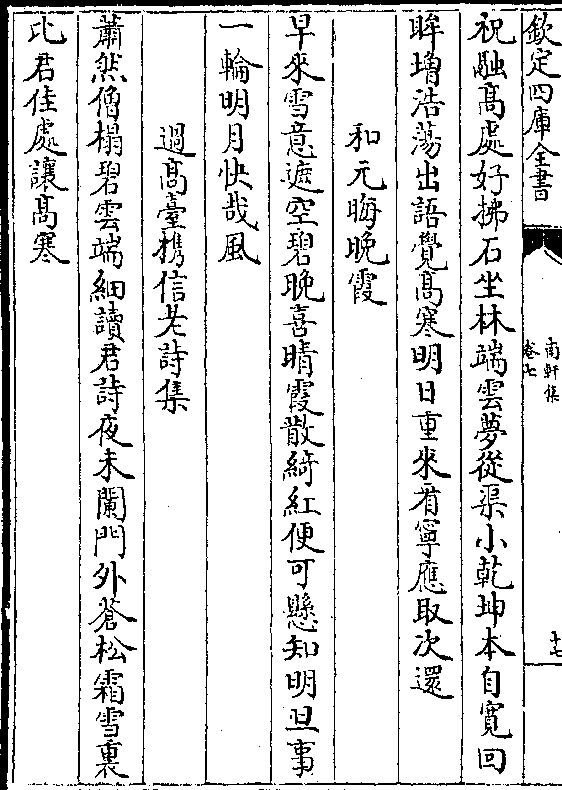 欽定四庫全書
南軒集
卷七
十七
祝融髙處好拂石坐林端雲夢從渠小乾坤本自寛回
眸增浩蕩出語覺髙寒明日重來看寧應取次還
和元晦晚霞
早來雪意遮空碧晚喜晴霞散綺紅便可懸知明旦事
一輪明月快哉風
過髙臺携信老詩集
蕭然僧榻碧雲端細讀君詩夜未闌門外蒼松霜雪裏
比君佳處讓髙寒